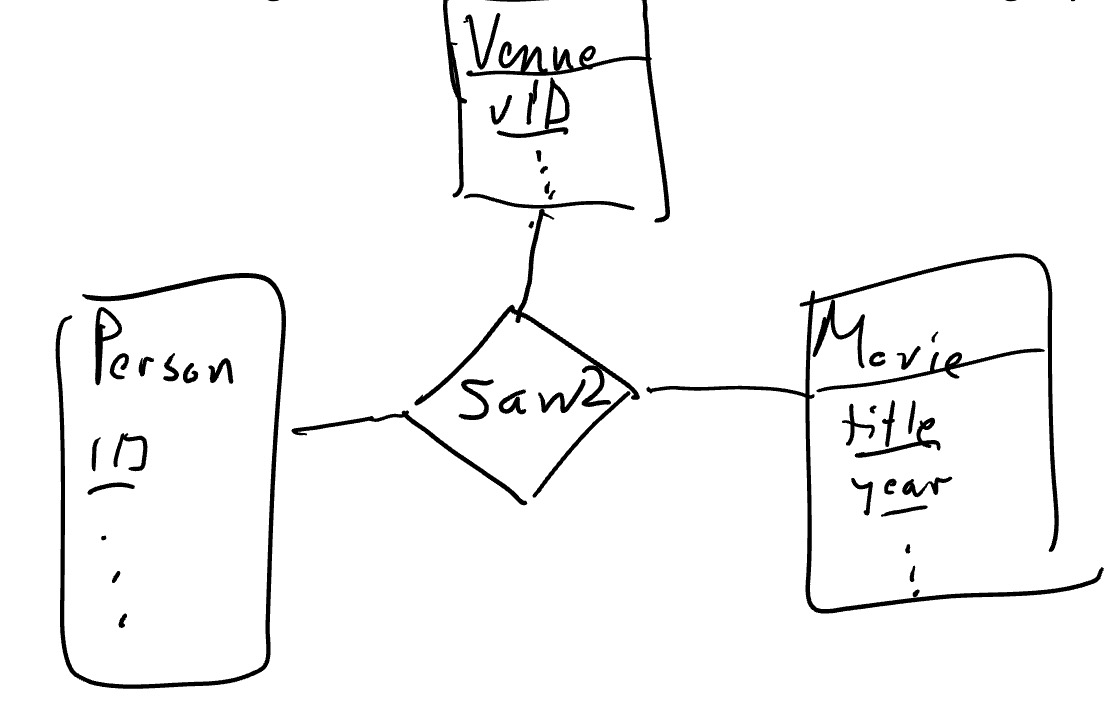 Venue
vID
Person
ID
Saw2
Movie
title
year